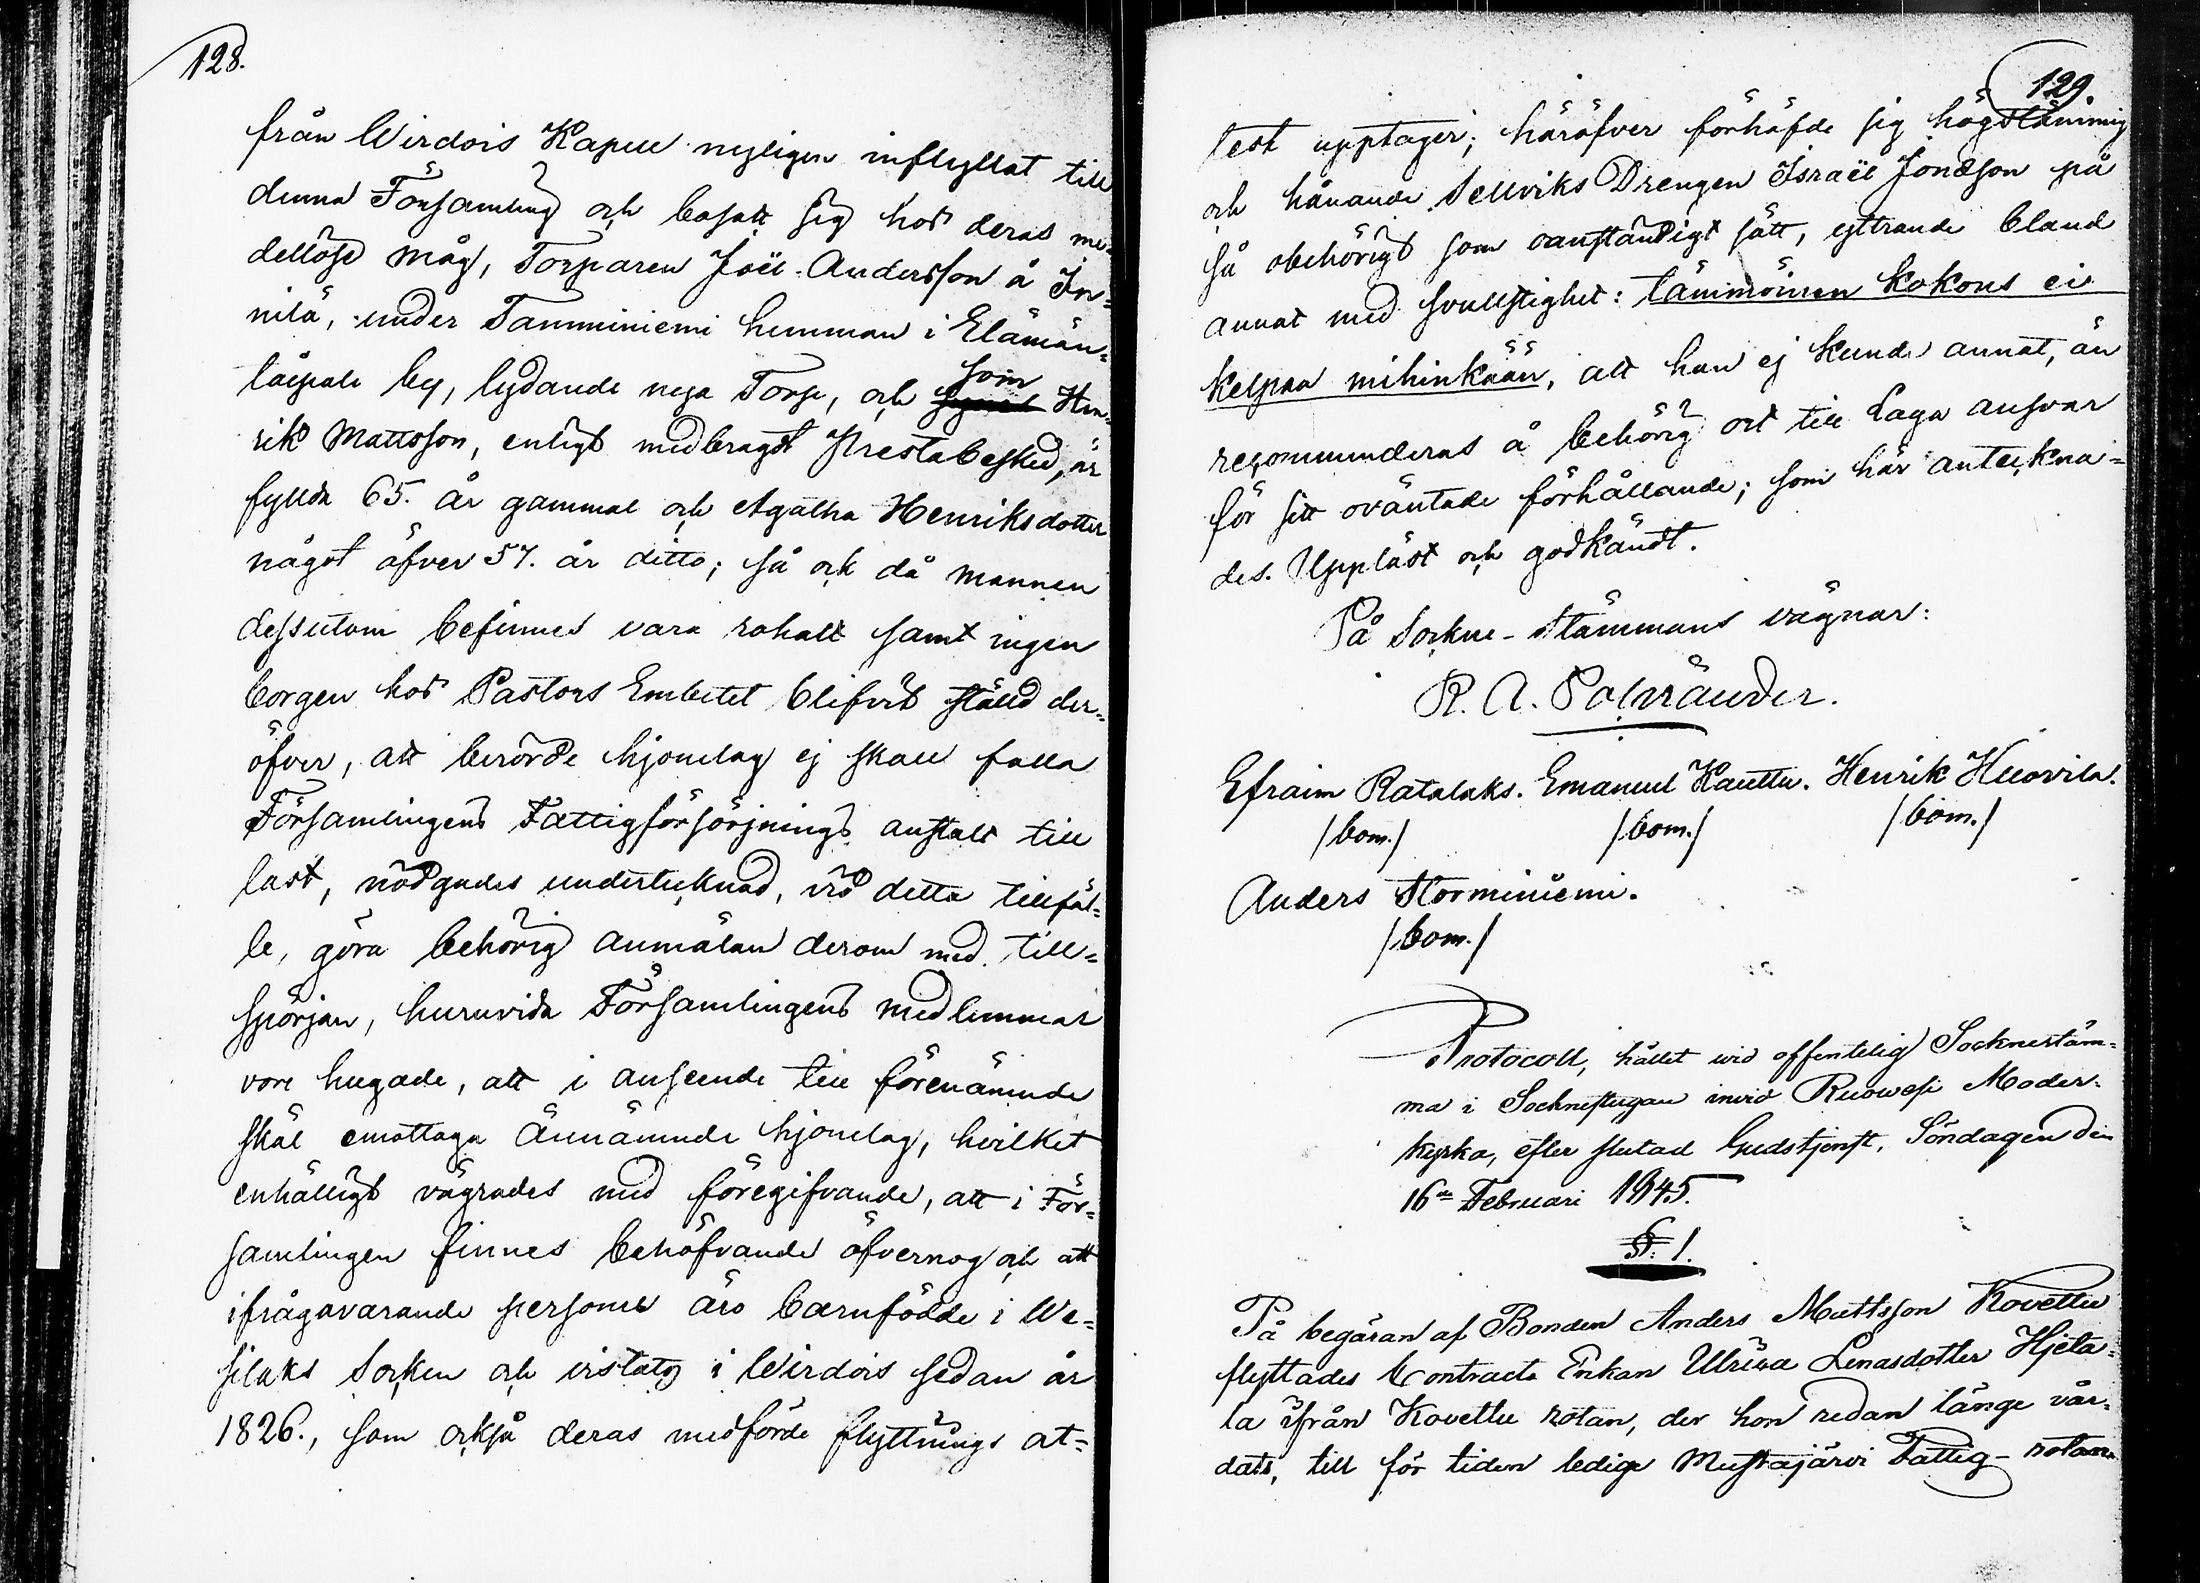 128.
från Wirdois Kapell nyligen inflyttat till
denna Församling och bosatt sig hos deras me-
dellöse måg, Torparen Joël Andersson å In-
nilä, under Tamminiemi hemman i Elämän-
by, lydande nya Torp, och som Hen-
rik Mattsson, enligt medbragdt Prestabesked, är
fyllda 65. år gammal och Agatha Henriksdotter
något öfver 57. år ditto; så och då mannen
dessutom befinnes vara ofärdig samt ingen
borgen hos Pastors Embetet blifvit ställd der-
öfver, att berörde hjonelag ej skall falla
Församlingens Fattigförsörjnings anstalt till
last, nödgades undertecknad, vid detta tillfäl-
le, göra behörig anmälan derom med till-
spörjan, huruvida Församlingens medlemmar
vore hugade, att i anseende till förenämnde
skäl emottaga ännämnde hjonelag, hvilket
enhälligt vägrades med föregifvande, att i För-
samlingen finnes behöfvande öfvernog och att
ifrågavarande personer äro barnfödde i We-
silaks Socken och vistats i Wirdois sedan år
1826., som också deras medförde flyttnings at-
129.
test upptager; häröfver förhäfde sig högstämmig
och hånande Sellviks Drengen Israël Jonæson på
så obehörigt som oanständigt sätt, yttrande bland
annat med svullstighet: tämmöinen kokous ei
kelpaa mihinkään, att han ej kunde annat, än
recommenderas å behörig ort till Laga ansvar
för sitt oväntade förhållande; som här anteckna-
des. Uppläst och godkändt.
På Sockne-Stämmans vägnar:
R. A. Polviander.
Efraim Ratalaks. Emanuel Kauttu. Henrik Huovila.
/bom./ /bom./ /bom./
Anders Storminiemi.
/bom./
Protocoll, hållet wid offentelig Socknestäm-
ma i Socknestugan inwid Ruowesi Moder-
kyrka, efter slutad Gudstjenst, Söndagen den
16de Februari 1845.
§. 1.
På begäran af Bonden Anders Mattsson Kovettu
flyttades Contracts Enkan Ulrica Lenasdotter Hjeta-
la ifrån Kovettu rotan, der hon redan länge vår-
dats, till för tiden ledige Mustajärvi Fattig-rotan